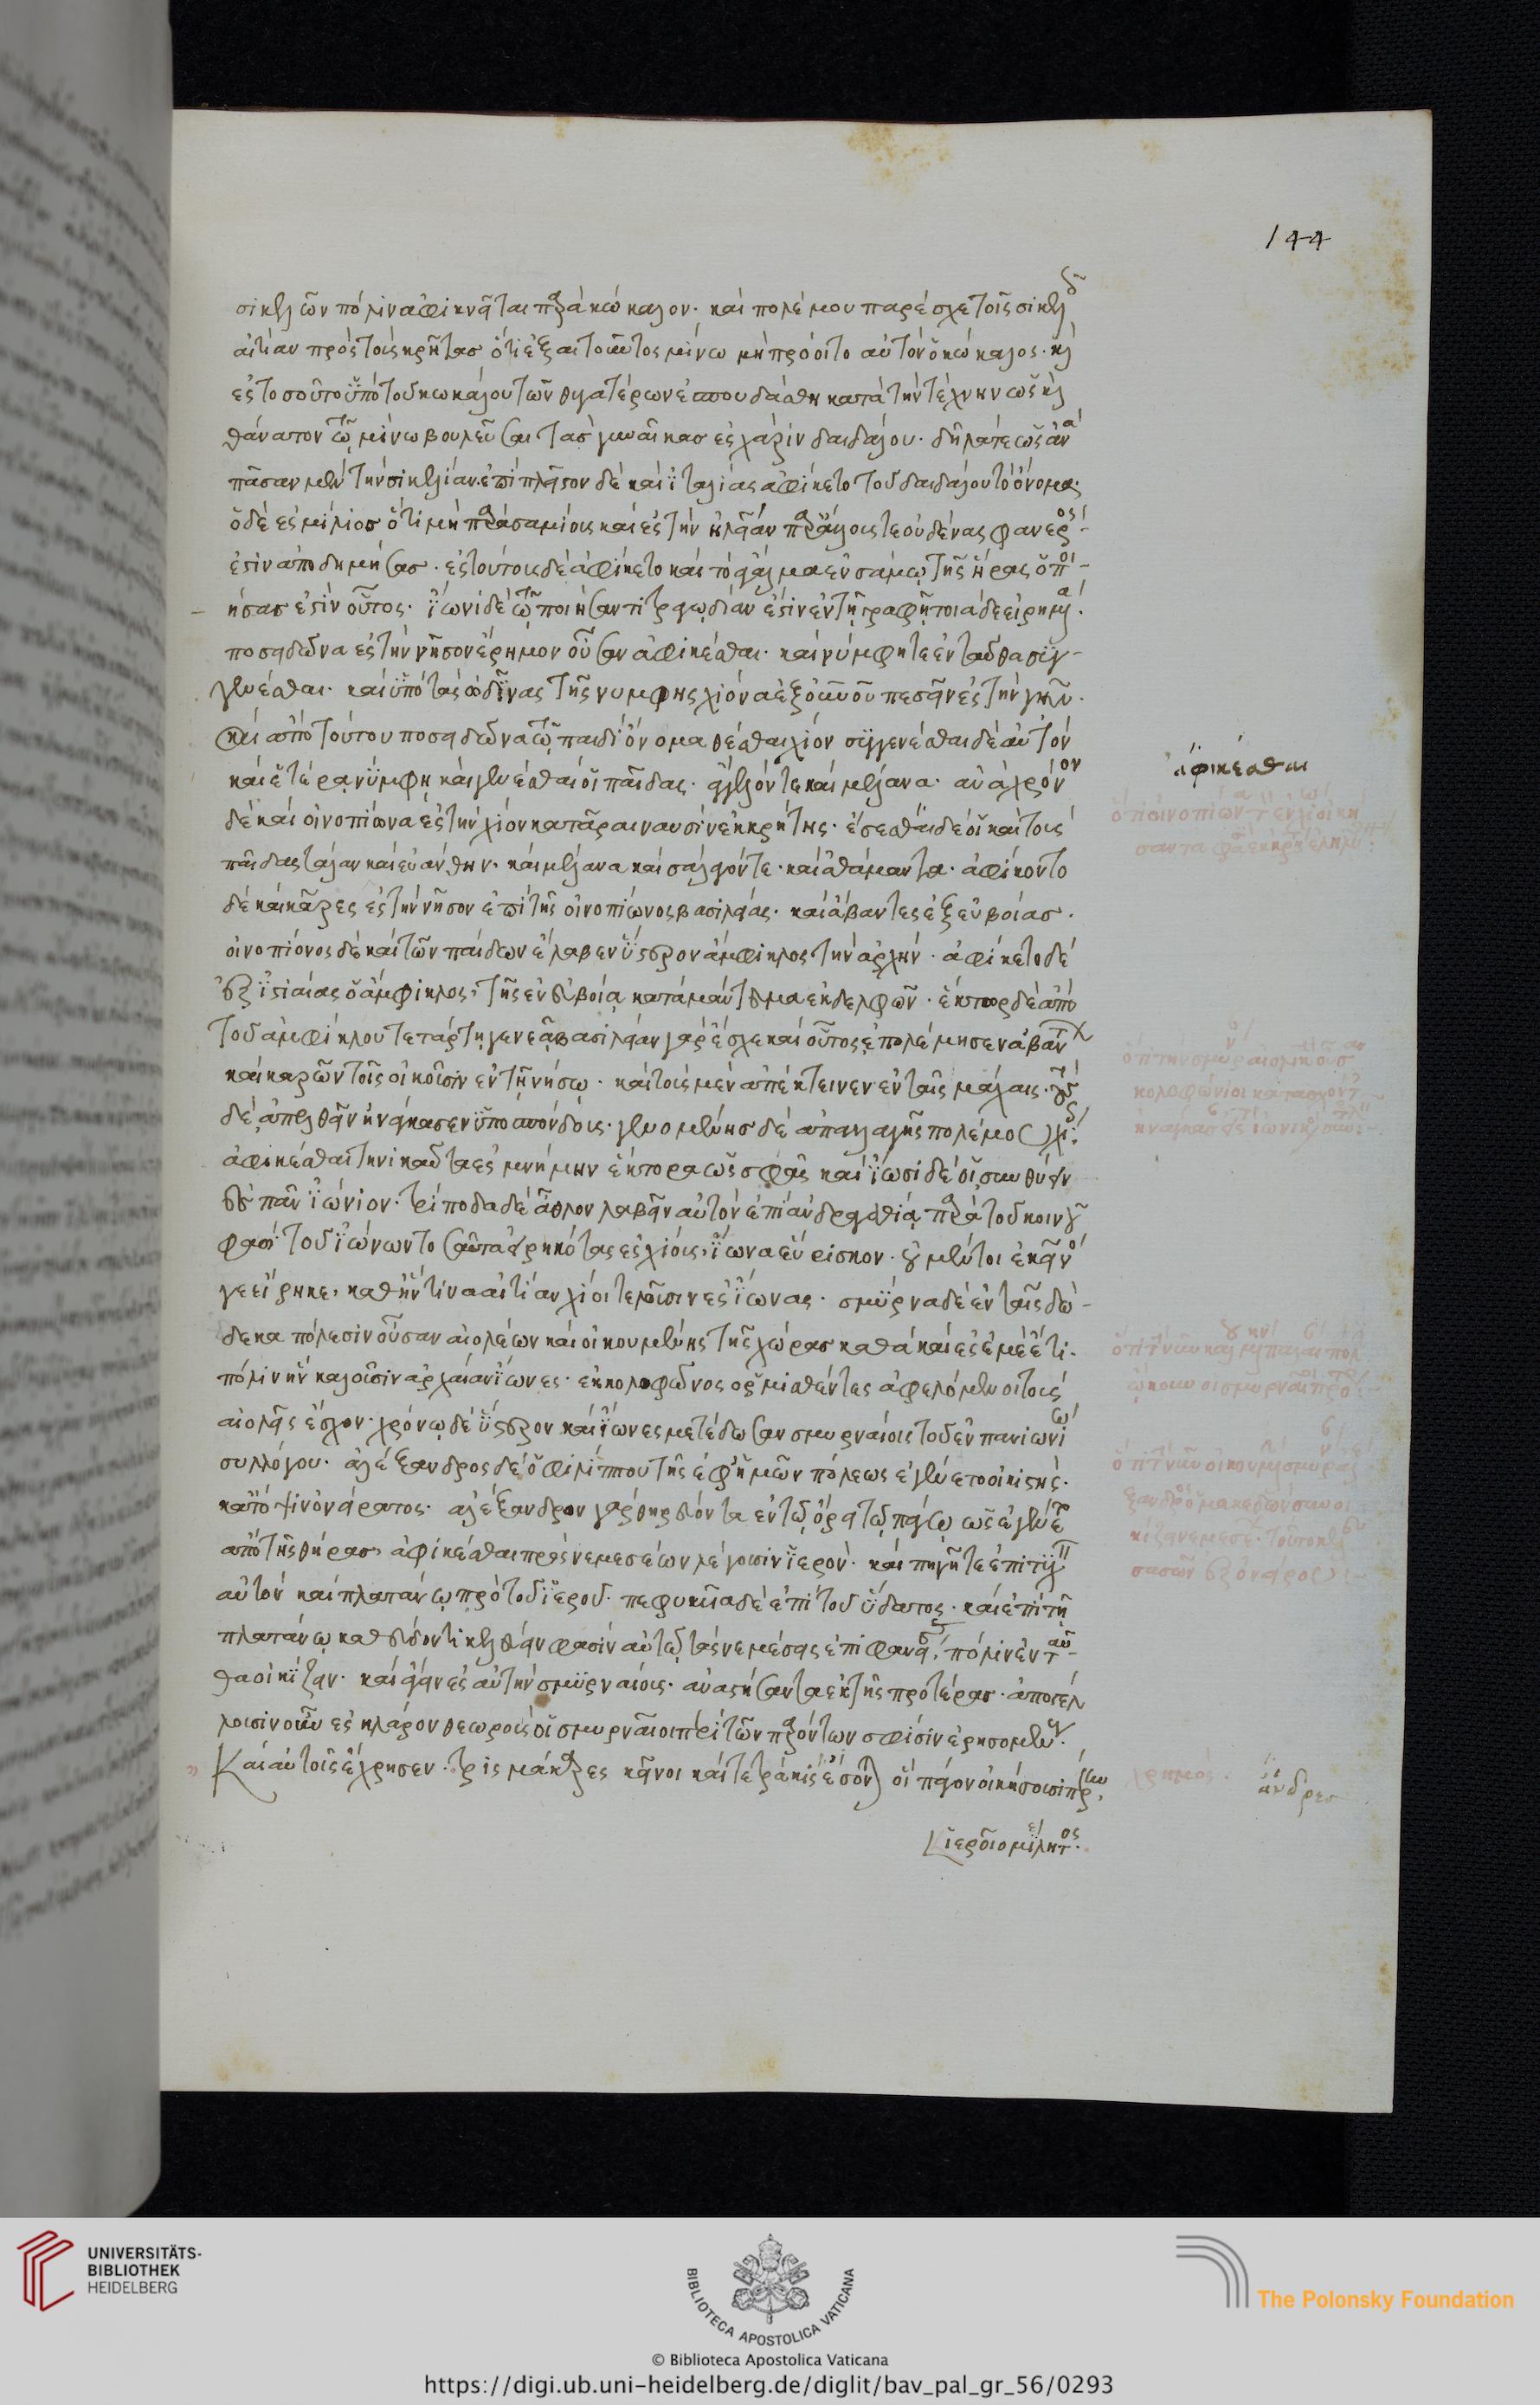 144
σικελῶν πόλιν ἀφικνεῖται παρὰ κώκαλον· καὶ πολέμου παρέσχε τοῖς σικελ
αἰτίαν πρὸς τοὺς κρῆτας ὅτι ἐξαιτοῦντος μίνω μὴ πρόοιτο αὐτὸν ὁ κώκαλος· καὶ
ἐς τοσοῦτο ὑπὸ τοῦ κωκάλου τῶν θυγατέρων ἐσπουδάσθη κατὰ τὴν τέχνην ὡς καὶ
θάνατον τῷ μίνω βουλεῦσαι τὰς γυναῖκας ἐς χάριν δαιδάλου· δῆλά τε ὡς ἀνὰ
πᾶσαν μὲν τὴν σικελίαν. ἐπὶ πλεῖστον δὲ καὶ ἰταλίας ἀφίκετο τοῦ δαιδάλου τὸ ὄνομα·
ὁ δὲ ὅτι μὴ παρὰ σαμίοις καὶ ἐς τὴν ἠλείαν παρ' ἄλλοις γε οὐδένας φανερός
ἐστιν ἀποδημήσας. ἐς τούτους δὲ ἀφίκετο καὶ τὸ ἄγαλμα ἐν σάμῳ τῆς ἥρας ὁ ποι-
ήσας ἐστὶν οὗτος· ἴωνι δὲ τῷ ποιήσαντι τραγῳδίαν ἐστὶν ἐν τῇ γραφῇ τοιάδε εἰρημένα·
ποσειδῶνα ἐς τὴν νῆσον ἔρημον οὖσαν ἀφικέσθαι· καὶ νύμφῃ τε ἐνταῦθα συγ-
γενέσθαι· καὶ ὑπὸ τὰς ὠδῖνας τῆς νύμφης χιόνα ἐξ οὐρανοῦ πεσεῖν ἐς τὴν γῆν·
καὶ ἀπὸ τούτου ποσειδῶνα τῷ παιδὶ ὄνομα θέσθαι χίον συγγενέσθαι δὲ αὐτὸν
καὶ ἑτέρᾳ νύμφῃ καὶ γενέσθαι οἱ παῖδας· ἄγγελόν τε καὶ μέλανα· ἀνὰ χρόνον
δὲ καὶ οἰνοπίωνα ἐς τὴν χίον κατᾶραι ναυσὶν ἐκ κρήτης· ἕπεσθαι δέ οἱ καὶ τοὺς
παῖδας τάλον καὶ εὐάνθην· καὶ μέλανα καὶ σάλαγόν τε· καὶ ἀθάμαντα· ἀφίκοντο
δὲ καὶ κᾶρες ἐς τὴν νῆσον ἐπὶ τῆς οἰνοπίωνος βασιλείας· καὶ ἄβαντες ἐξ εὐβοίας·
οἰνοπίονος δὲ καὶ τῶν παίδων ἔλαβεν ὕστερον ἄμφικλος τὴν ἀρχήν· ἀφίκετο δὲ
ἐξ ἱστιαίας ὁ ἄμφικλος, τῆς ἐν εὐβοίᾳ κατὰ μάντευμα ἐκ δελφῶν· ἕκτωρ δὲ ἀπὸ
τοῦ ἀμφίκλου τετάρτῃ γενεᾷ βασιλείαν γὰρ ἔσχε καὶ οὗτος ἐπολέμησεν ἀβάντ
καὶ καρῶν τοῖς οἰκοῦσιν ἐν τῇ νήσῳ· καὶ τοὺς μὲν ἀπέκτεινεν ἐν ταῖς μάχαις· τοὺς
δὲ ἀπελθεῖν ἠνάγκασεν ὑποσπόνδους· γενομένης δὲ ἀπαλλαγῆς πολέμου χί
ἀφικέσθαι τηνικαῦτα ἐς μνήμην ἕκτορα ὡς σφᾶς καὶ ἴωσι δέοι συνθύειν
ἐς πανιώνιον· τρίποδα δὲ ἆθλον λαβεῖν αὐτὸν ἐπὶ ἀνδραγαθίᾳ παρὰ τοῦ κοινοῦ
φασὶ τοῦ ἰώνων τοσαῦτα εἰρηκότα ἐς χίους, ἴωνα εὕρισκον· οὐ μέντοι ἐκεῖνό
γε εἴρηκε, καθ' ἥντινα αἰτίαν χῖοι τελοῦσιν ἐς ἴωνας· σμύρναν δὲ ἐν ταῖς δώ-
δεκα πόλεσιν οὖσαν αἰολέων καὶ οἰκουμένης τῆς χώρας καθὰ καὶ ἐς ἐμὲ ἔτι·
πόλιν ἣν καλοῦσιν ἀρχαίαν ἴωνες· ἐκ κολοφῶνος ὁρμηθέντες ἀφελόμενοι τοὺς
αἰολεῖς ἔσχον· χρόνῳ δὲ ὕστερον καὶ ἴωνες μετέδωσαν σμυρναίοις τοῦ ἐν πανιωνίω
συλλόγου· ἀλέξανδρος δὲ ὁ φιλίππου τῆς ἐφ' ἡμῶν πόλεως ἐγένετο οἰκιστής·
κατ' ὄψιν ὀνείρατος· ἀλέξανδρον γὰρ θηρεύοντα ἐν τῷ ὄρει τῷ πάγῳ ὡς ἐγένετο
ἀπὸ τῆς θήρας, ἀφικέσθαι πρὸς νεμέσεων λέγουσιν ἱερόν· καὶ πηγῇ τε ἐπιτυχ
αὐτὸν καὶ πλατάνῳ πρὸ τοῦ ἱεροῦ· πεφυκυίᾳ δὲ ἐπὶ τοῦ ὕδατος· καὶ ἐπὶ τῇ
πλατάνῳ καθεύδοντι κελεύειν φασὶν αὐτῷ τὰς νεμέσεις ἐπιφανείσας, πόλιν ἐνταῦ-
θα οἰκίζειν· καὶ ἄγειν ἐς αὐτὴν σμυρναίους· ἀναστήσαντα ἐκ τῆς προτέρας· ἀποστέλ
λουσιν οὖν ἐς κλάρον θεωροὺς οἱ σμυρναῖοι περὶ τῶν παρόντων σφίσιν ἐρησομένους·
Καὶ αὐτοῖς ἔχρησεν· τρὶς μάκαρες κεῖνοι καὶ τετράκις ἔσονται οἳ πάγον οἰκήσουσι πέρην
ἱεροῖο μέλητος·
ἀφικέσθαι
χρησμός·
ἄνδρες
UNIVERSITÄTS-
BIBLIOTHEK
HEIDELBERG
BIBLIOTECA APOSTOLICA VATICANA
The Polonsky Foundation
© Biblioteca Apostolica Vaticana
https://digi.ub.uni-heidelberg.de/diglit/bav_pal_gr_56/0293